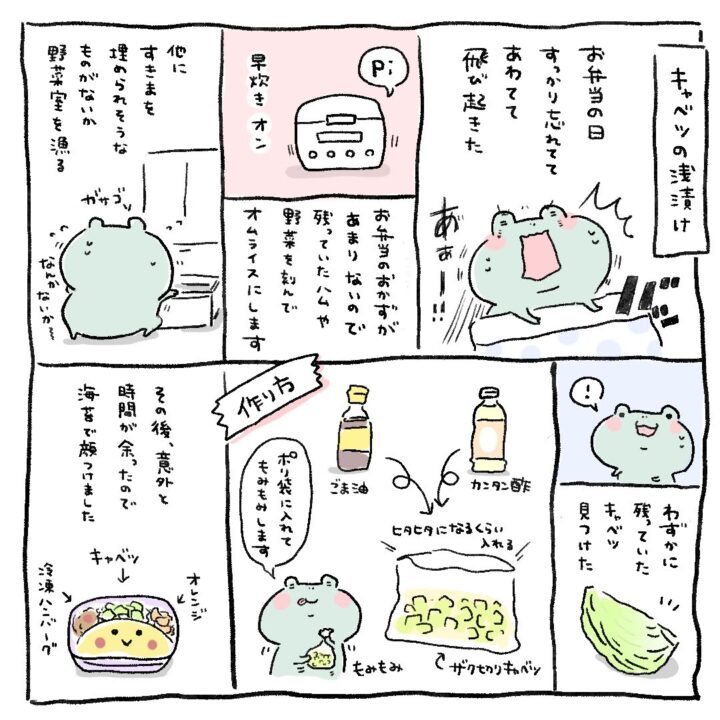 キャベツの浅漬け
お弁当の日
すっかり忘れてて
あわてて
飛び起きた
あぁー!!
バッ
Pi
早炊き オン
お弁当のおかずが
あまりないので
残っていたハムや
野菜を刻んで
オムライスにします
他に
すきまを
埋められそうな
ものがないか
野菜室を漁る
ガサゴソ
なんかないか〜
!
わずかに
残っていた
キャベツ
見つけた
作り方
カンタン酢
ごま油
ヒタヒタになるくらい
入れる
ザク切りキャベツ
ポリ袋に入れて
もみもみします
もみもみ
その後、意外と
時間が余ったので
海苔で顔つけました
キャベツ
オレンジ
冷凍ハンバーグ